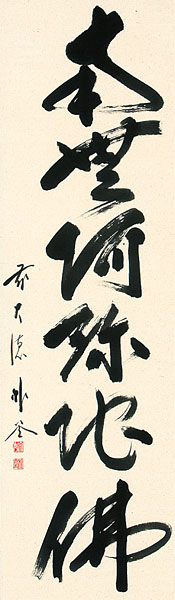 南無阿弥陀佛
前大徳